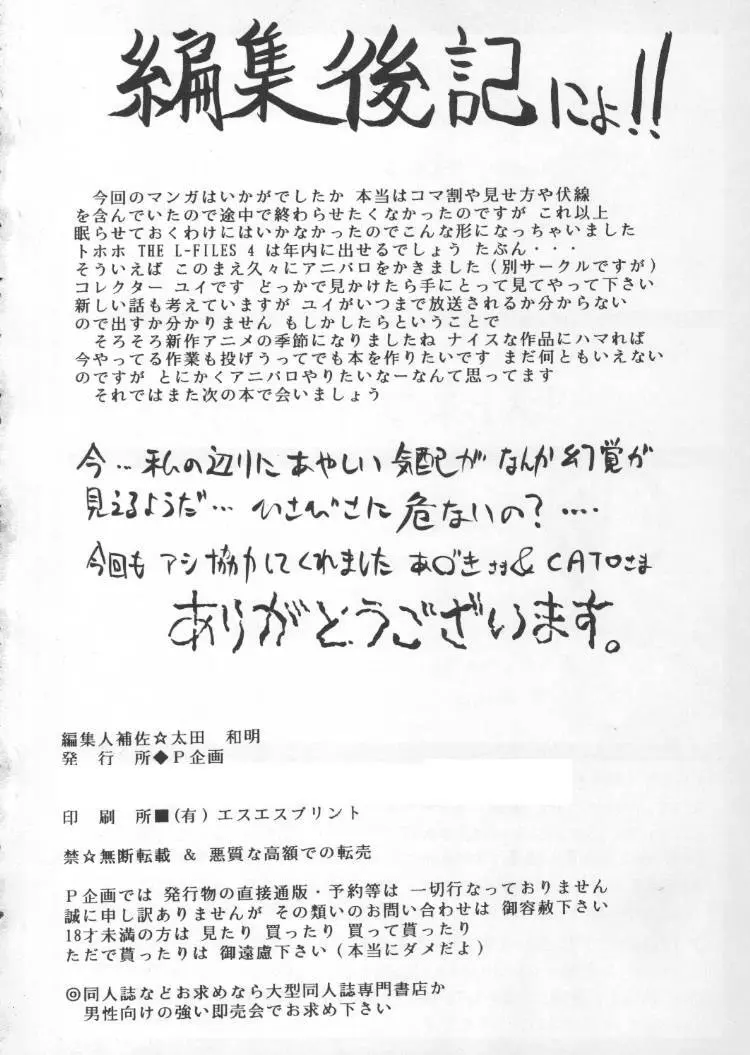 編集後記によ!!
今回のマンガはいかがでしたか 本当はコマ割や見せ方や伏線
を含んでいたので途中で終わらせたくなかったのですが これ以上
眠らせておくわけにはいかなかったのでこんな形になっちゃいました
トホホ THE L-FILES 4 は年内に出せるでしょう たぶん・・・
そういえば このまえ久々にアニパロをかきました(別サークルですが)
コレクター ユイです どっかで見かけたら手にとって見てやって下さい
新しい話も考えていますが ユイがいつまで放送されるか分からない
ので出すか分かりません もしかしたらということで
そろそろ新作アニメの季節になりましたね ナイスな作品にハマれば
今やってる作業も投げうってでも本を作りたいです まだ何ともいえない
のですが とにかくアニパロやりたいなーなんて思ってます
それではまた次の本で会いましょう
今… 私の辺りにあやしい気配が なんか幻覚が
見えるようだ… いさびさに 危ないの?‥‥
今回も アシ協力してくれました あづきさま & CATOさま
ありがとうございます。
編集人補佐☆太田 和明
発行所◆P企画
印刷所■(有)エスエスプリント
禁☆無断転載 & 悪質な高額での転売
P企画では 発行物の直接通販・予約等は 一切行なっておりません
誠に申し訳ありませんが その類いのお問い合わせは 御容赦下さい
18才未満の方は 見たり 買ったり 買って貰ったり
ただで貰ったりは 御遠慮下さい(本当にダメだよ)
◎同人誌などお求めなら大型同人誌専門書店か
男性向けの強い即売会でお求め下さい